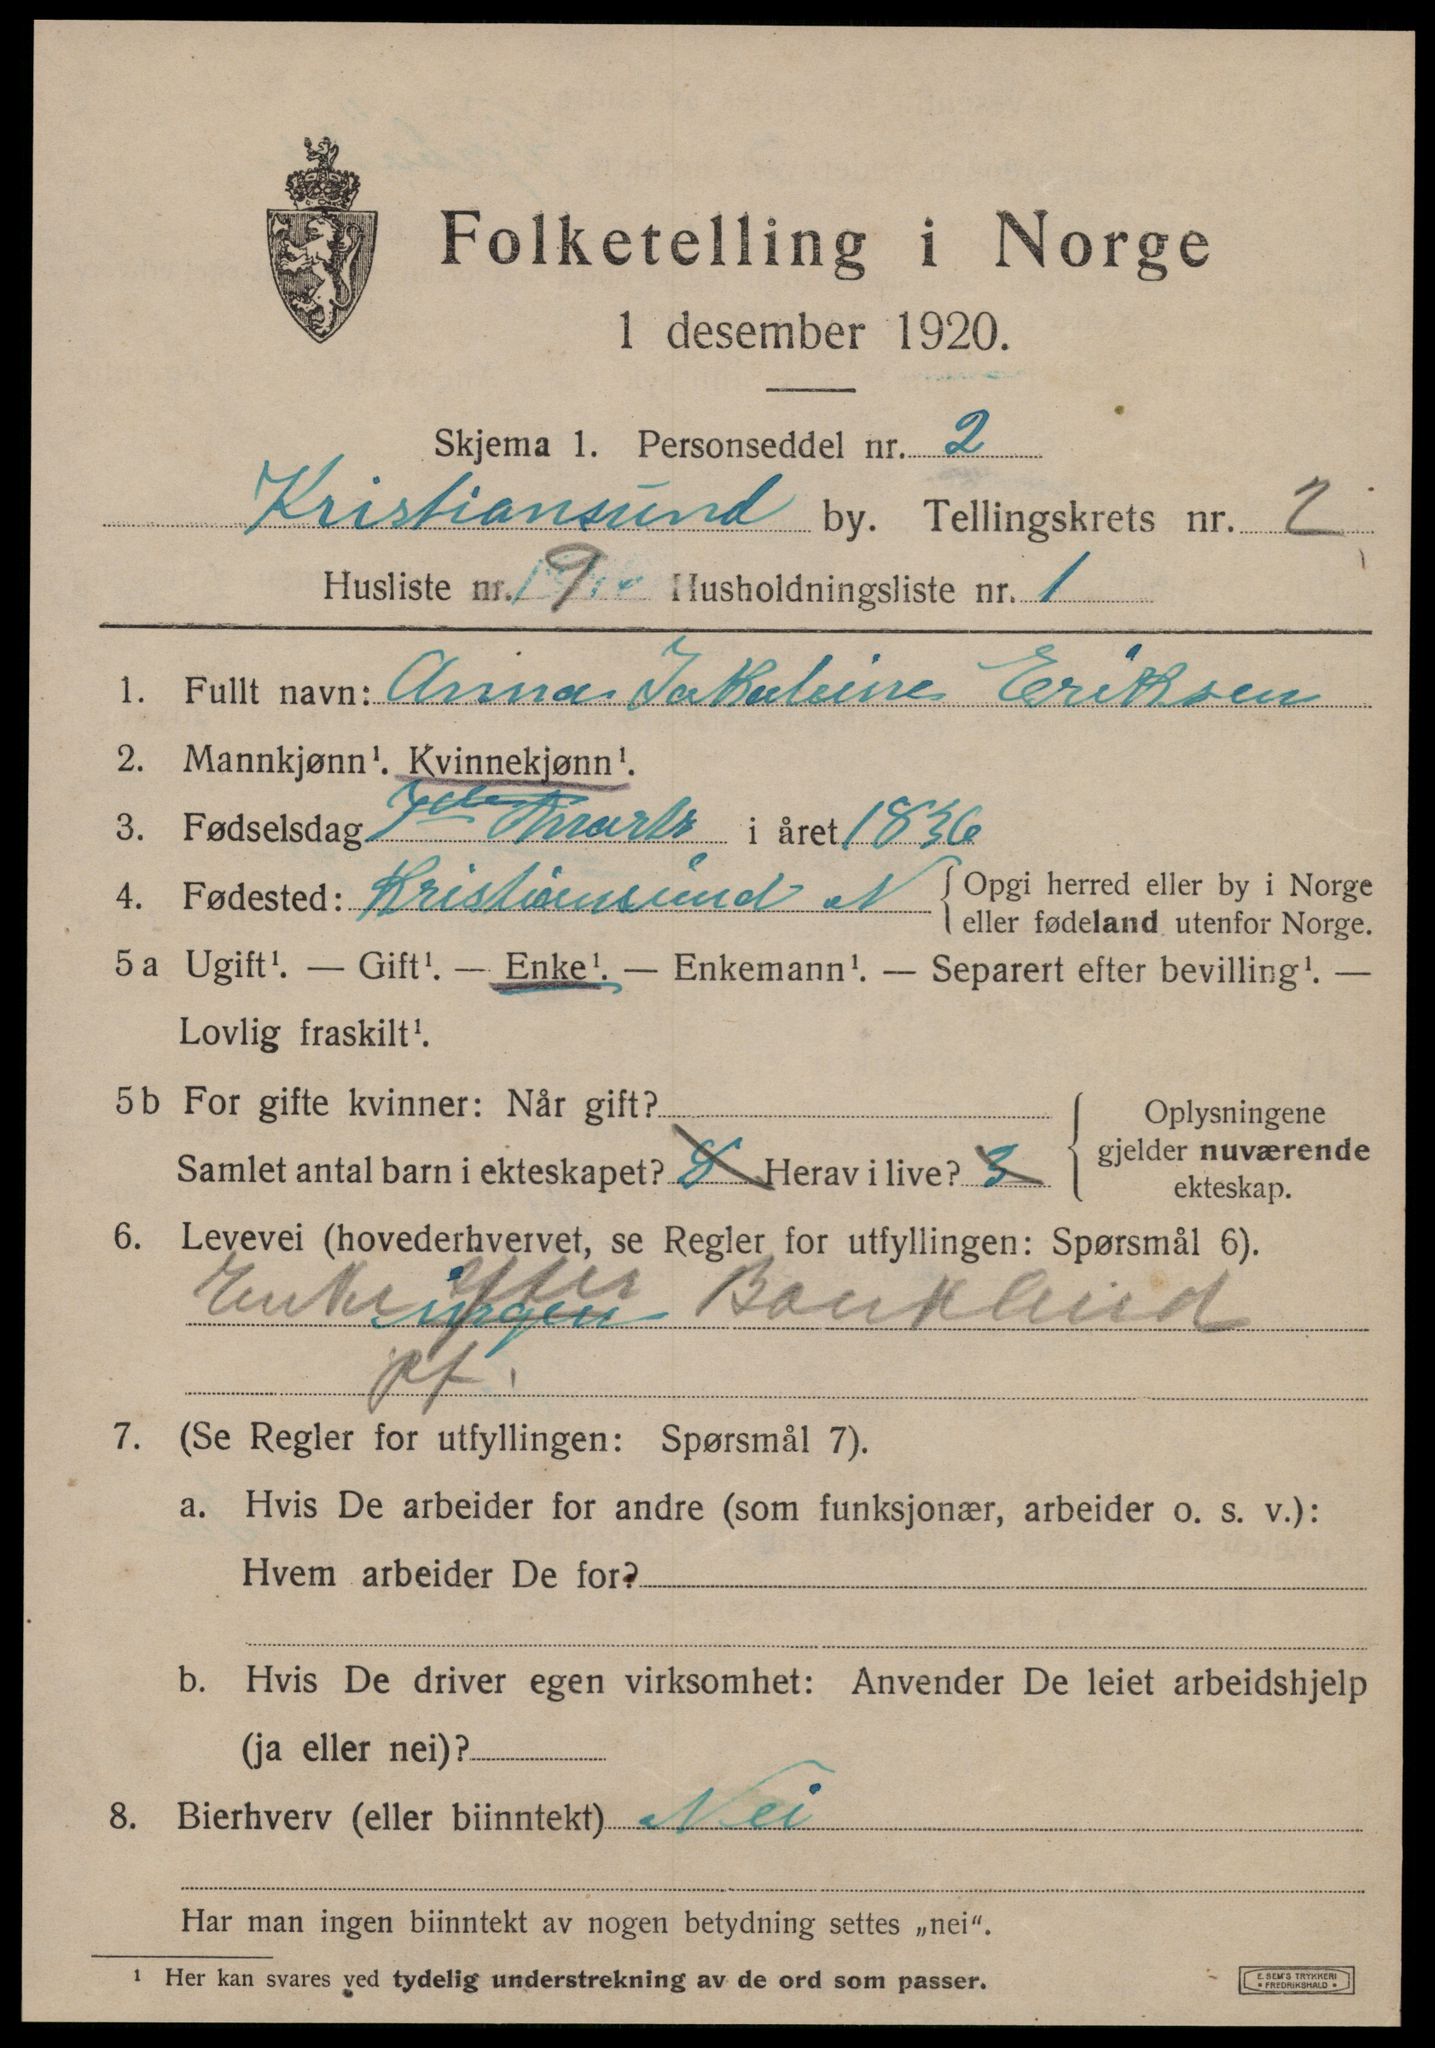 Folketelling i Norge
1 desember 1920.
Skjema 1. Personseddel nr. 2
Kristiansund by. Tellingskrets nr. 2
Husliste nr. 9 Husholdningsliste nr. 1
1. Fullt navn: Anna Jakobine Eriksen
2. Mannkjønn¹. Kvinnekjønn¹.
3. Fødselsdag 7de Marts i året 1836
4. Fødested: Kristiansund N { Opgi herred eller by i Norge
eller fødeland utenfor Norge.
5a Ugift¹. — Gift¹. — Enke¹. — Enkemann¹. — Separert efter bevilling¹. —
Lovlig fraskilt¹.
5b For gifte kvinner: Når gift?
Samlet antal barn i ekteskapet? 8 Herav i live? 3
{ Oplysningene
gjelder nuværende
ekteskap.
6. Levevei (hovederhvervet, se Regler for utfyllingen: Spørsmål 6).
Enke efter ingen
7. (Se Regler for utfyllingen: Spørsmål 7).
a. Hvis De arbeider for andre (som funksjonær, arbeider o. s. v.):
Hvem arbeider De for?
b. Hvis De driver egen virksomhet: Anvender De leiet arbeidshjelp
(ja eller nei)?
8. Bierhverv (eller biinntekt) Nei
Har man ingen biinntekt av nogen betydning settes „nei".
¹ Her kan svares ved tydelig understrekning av de ord som passer.
E. SEM'S TRYKKERI
FREDRIKSHALD